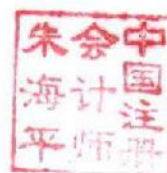 中国注册
会计师
朱海平